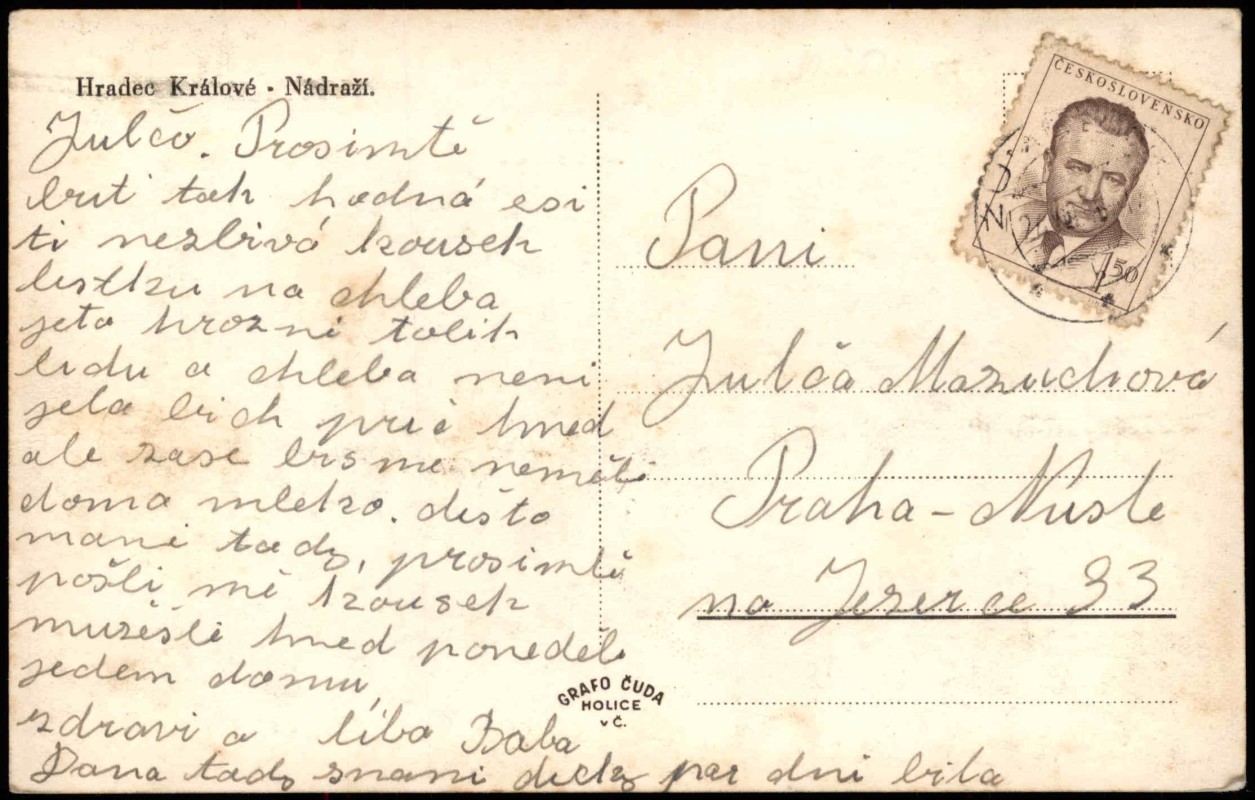 Hradec Králové · Nádraží.
Julčo. Prosimtě
brit tak hodná esi
ti nezbivá kousek
listku na chleba
jeto hrozni tolik
lidu a chleba neni
jela bich prič hned
ale zase bisme neměli
doma mleko. dišto
mani tady, prosimtě
pošli mě kousek
muzešli hned ponděli
jedem domu,
zdravi a líba Baba
Dana tady snami dicky par dni bila
ČESKOSLOVENSKO
1,50
Pani
Julča Mazuchová
Praha - Nusle
na Jezerce 33
GRAFO ČUDA
HOLICE
v Č.